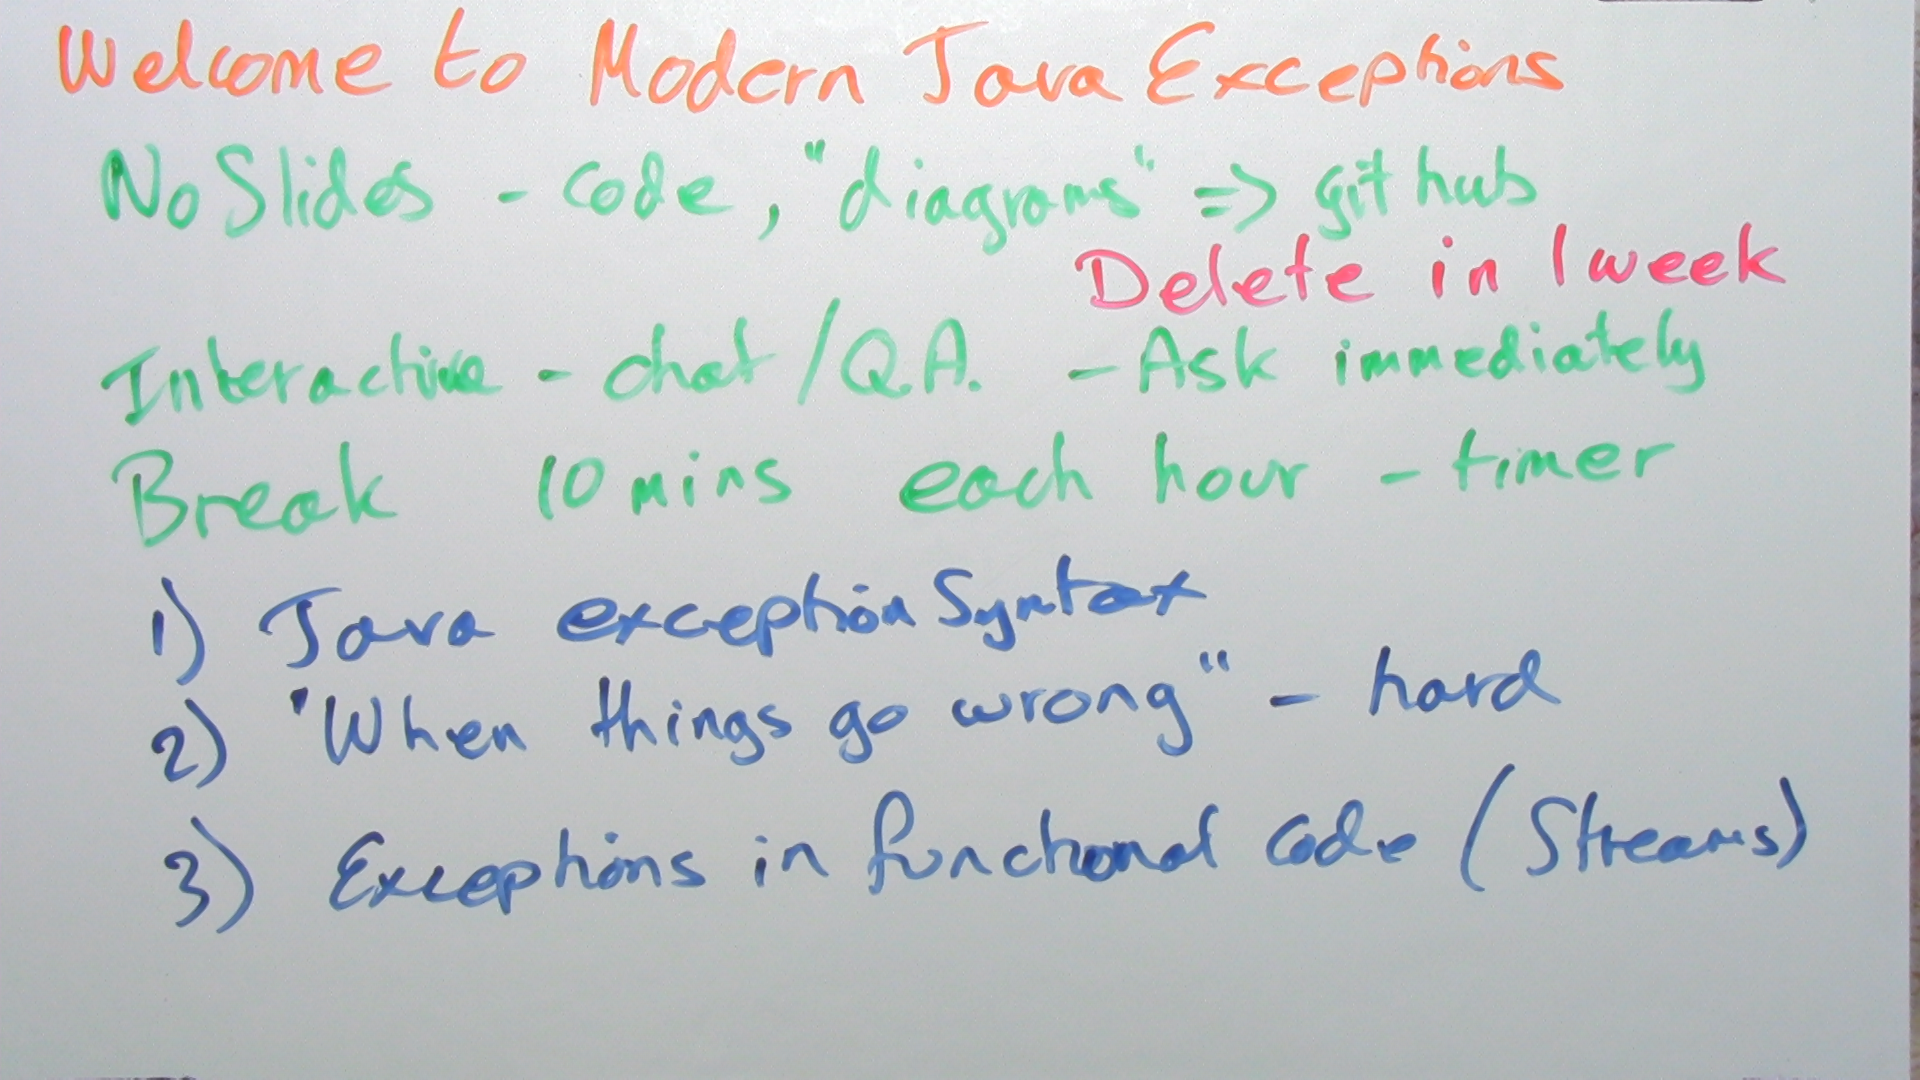 Welcome to Modern Java Exceptions
No Slides - code, "diagrams" => github
Delete in 1 week
Interactive - chat / Q.A. - Ask immediately
Break 10 mins each hour - timer
1) Java exception Syntax
2) "When things go wrong" - hard
3) Exceptions in functional code (Streams)